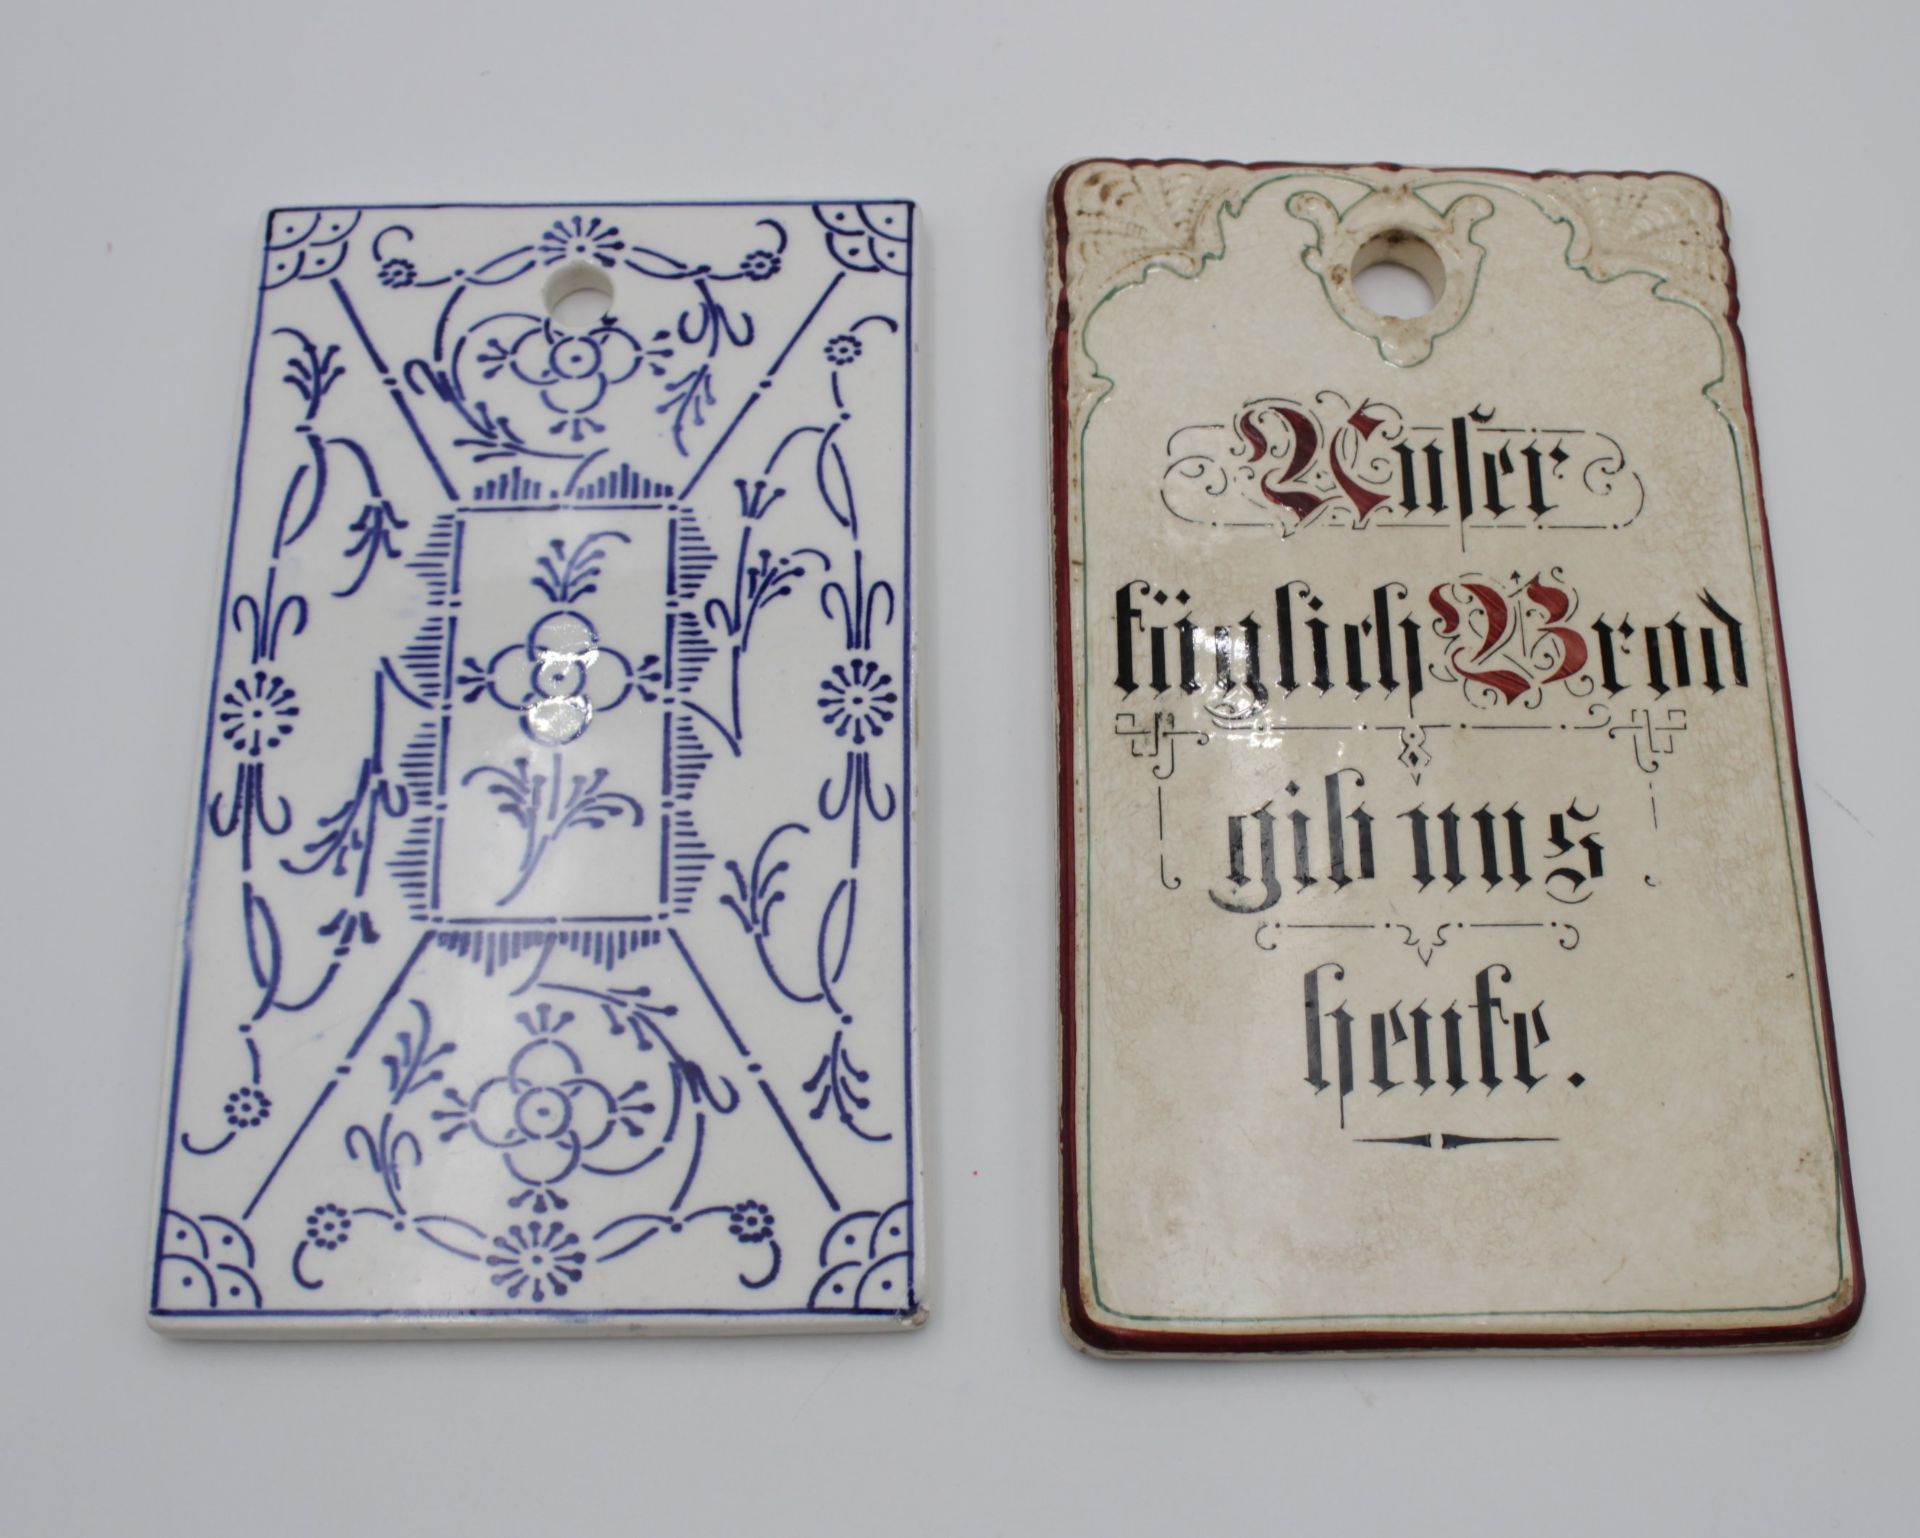 Unser
täglich Brod
gib uns
heute.